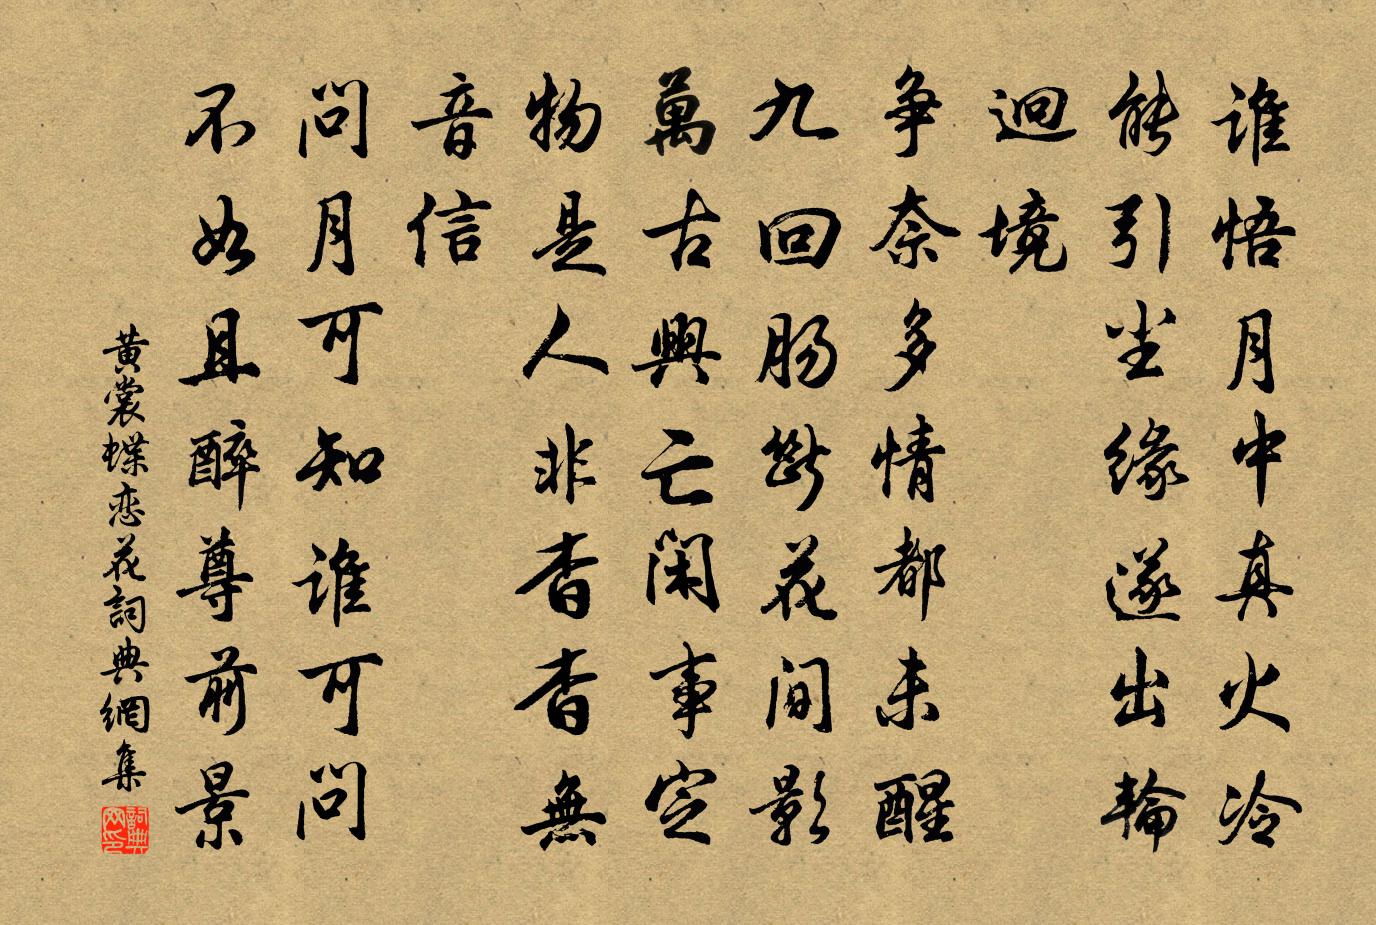 谁悟月中真火冷
能引尘缘遂出輪
迴境
争奈多情都未醒
九回肠斷花間影
萬古興亡闲事定
物是人非杳杳無
音信
問月可知谁可問
不如且醉尊前景
黄裳蝶恋花詞典網集
詞典
网印